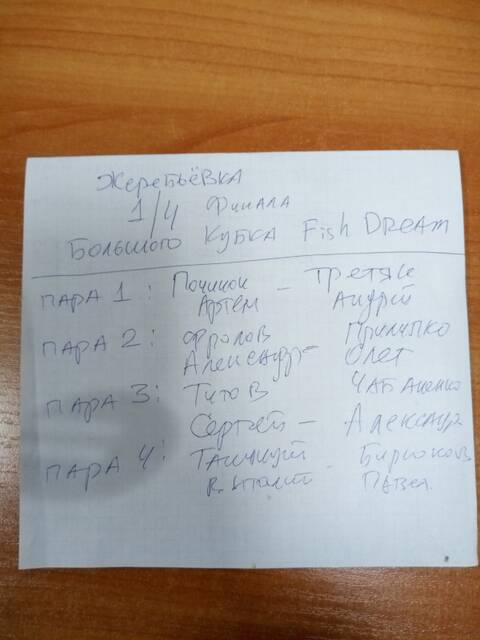 Жеребьёвка
1/4 Финала
Большого Кубка Fish Dream
ПАРА 1: Починок - Третяк
Артём Андрій
ПАРА 2: Фролов Прилипко
Александр - Олег
ПАРА 3: Титов Чабаненко
Сергей - Александр
ПАРА 4: Бирюков
Виталий - Павел.